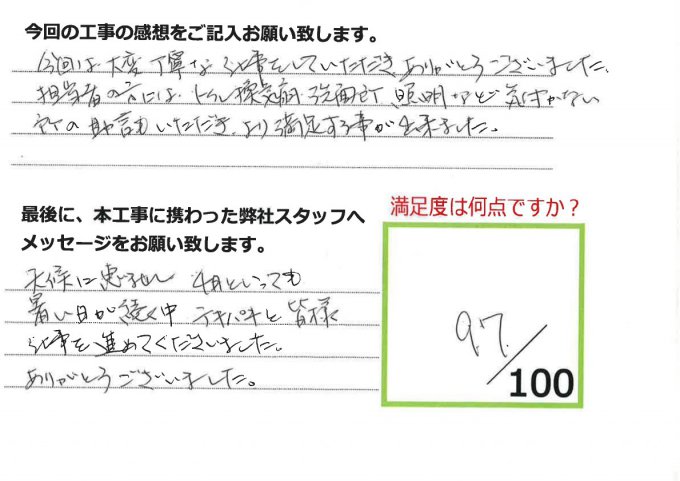 今回の工事の感想をご記入お願い致します。
今回は大変丁寧な仕事をしていただき、ありがとうございました。
担当者の方には、トイレ換気扇、洗面所、照明など気付かない
所の助言もいただき、より満足する事が出来ました。
最後に、本工事に携わった弊社スタッフへ
メッセージをお願い致します。
天候に恵まれ 4月といっても
暑い日が続く中 テキパキと皆様
仕事を進めてくださいました。
ありがとうございました。
満足度は何点ですか？
97/100